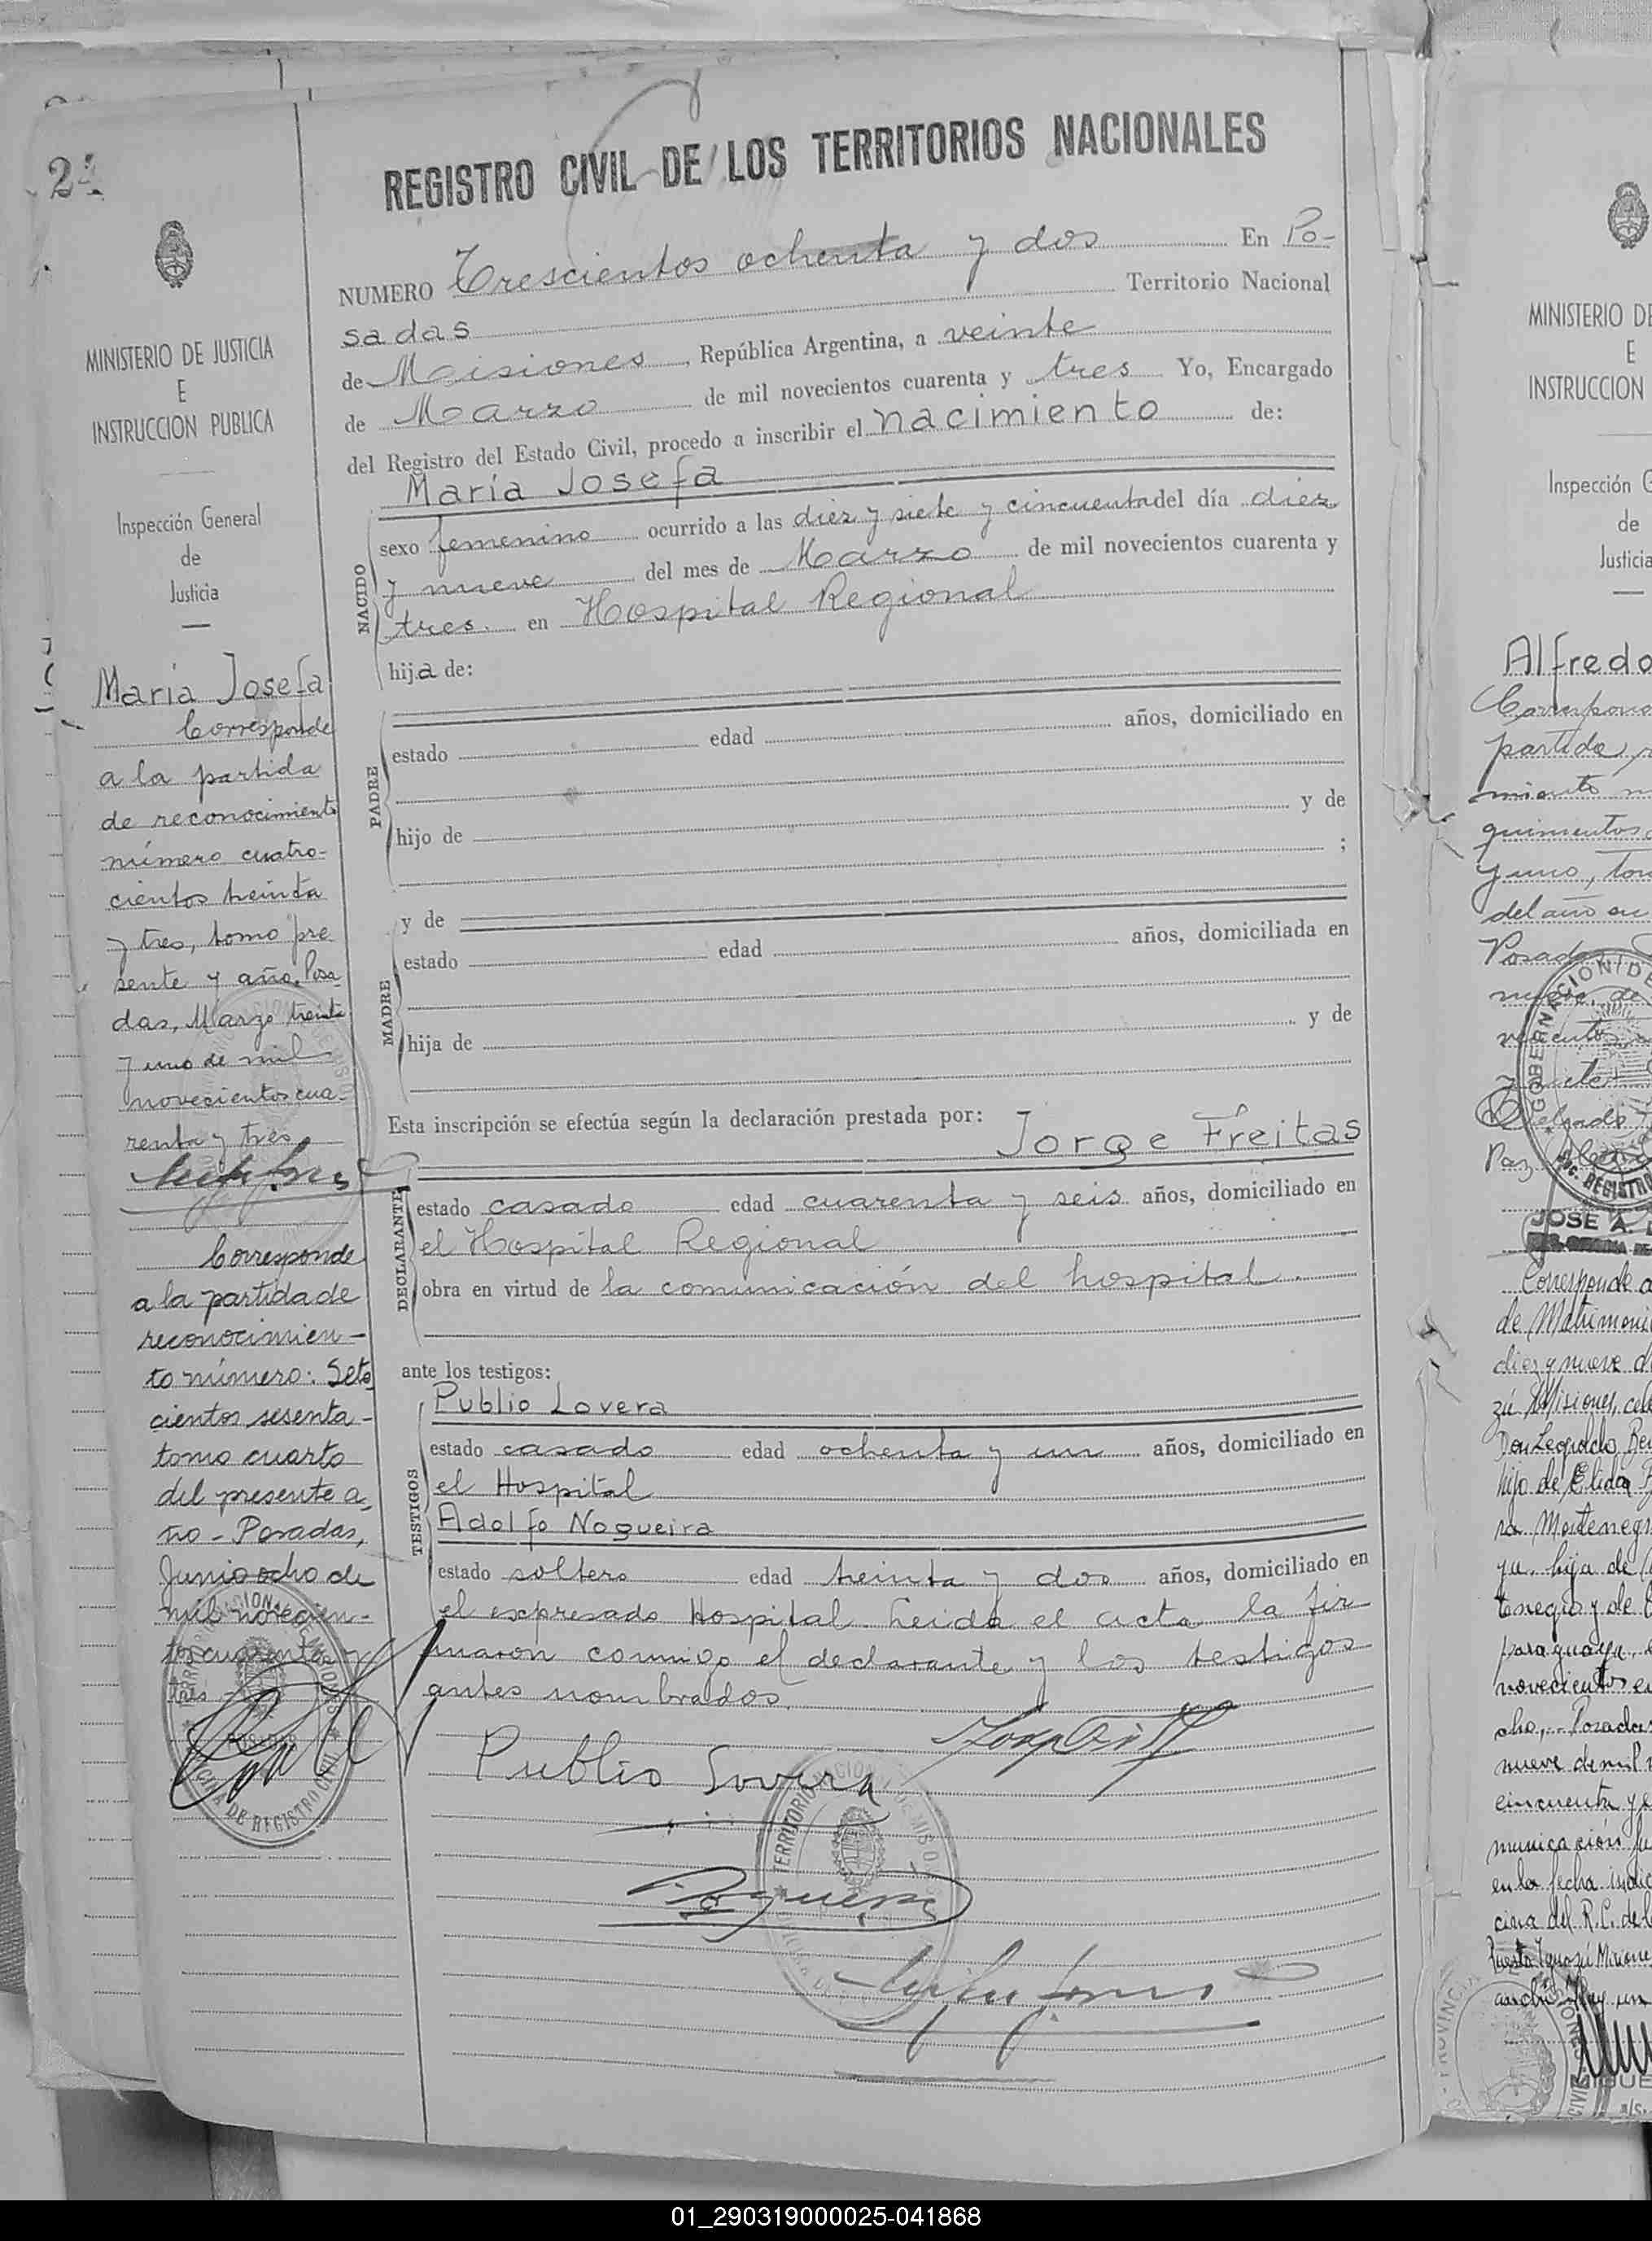 24
MINISTERIO DE JUSTICIA
E
INSTRUCCION PUBLICA
Inspección General
de
Justicia
María Josefa
Corresponde
a la partida
de reconocimiento
número cuatro-
cientos treinta
y tres, tomo pre
sente y año. Posa
das, Marzo treinta
y uno de mil
novecientos cua-
renta y tres
Corresponde
a la partida de
reconocimien-
to número: Sete
cientos sesenta-
tomo cuarto
del presente a-
ño - Posadas,
Junio ocho de
mil novecien-
tos cuarenta y
tres -
REGISTRO CIVIL DE LOS TERRITORIOS NACIONALES
NUMERO Trescientos ochenta y dos En Po-
sadas Territorio Nacional
de Misiones, República Argentina, a veinte
de Marzo de mil novecientos cuarenta y tres Yo, Encargado
del Registro del Estado Civil, procedo a inscribir el nacimiento de:
María Josefa
NACIDO
sexo femenino ocurrido a las diez y siete y cincuenta del día diez
y nueve del mes de Marzo de mil novecientos cuarenta y
tres. en Hospital Regional
hija de:
PADRE
estado edad años, domiciliado en
hijo de y de
;
MADRE
y de
estado edad años, domiciliada en
hija de y de
Esta inscripción se efectúa según la declaración prestada por: Jorge Freitas
DECLARANTE
estado casado edad cuarenta y seis años, domiciliado en
el Hospital Regional
obra en virtud de la comunicación del hospital.
ante los testigos:
TESTIGOS
Publio Lovera
estado casado edad ochenta y un años, domiciliado en
el Hospital
Adolfo Nogueira
estado soltero edad treinta y dos años, domiciliado en
el expresado Hospital. Leida el acta la fir
maron conmigo el declarante y los testigos
antes nombrados.
Publio Lovera
TERRITORIO NACIONAL DE MISIONES
OFICINA DE REGISTRO CIVIL
MINISTERIO DE
E
INSTRUCCION
Inspección G
de
Justicia
Alfredo
partida
quimentos
y uno, tom
del año en
Posada
GOBERNACION DE
REGISTRO
JOSE A.
Corresponde a
de Matrimoni
diez y nueve d
zú Misiones, cele
hijo de Elida
ra Montenegr
ya. hija de
tenegro y de
paraguaya,
novecientos
cho,- Posadas
nueve de mil
cincuenta y
municación
en la fecha indic
cina del R.C. de
Puerto Iguazú Misione
PROVINCIA
01_290319000025-041868